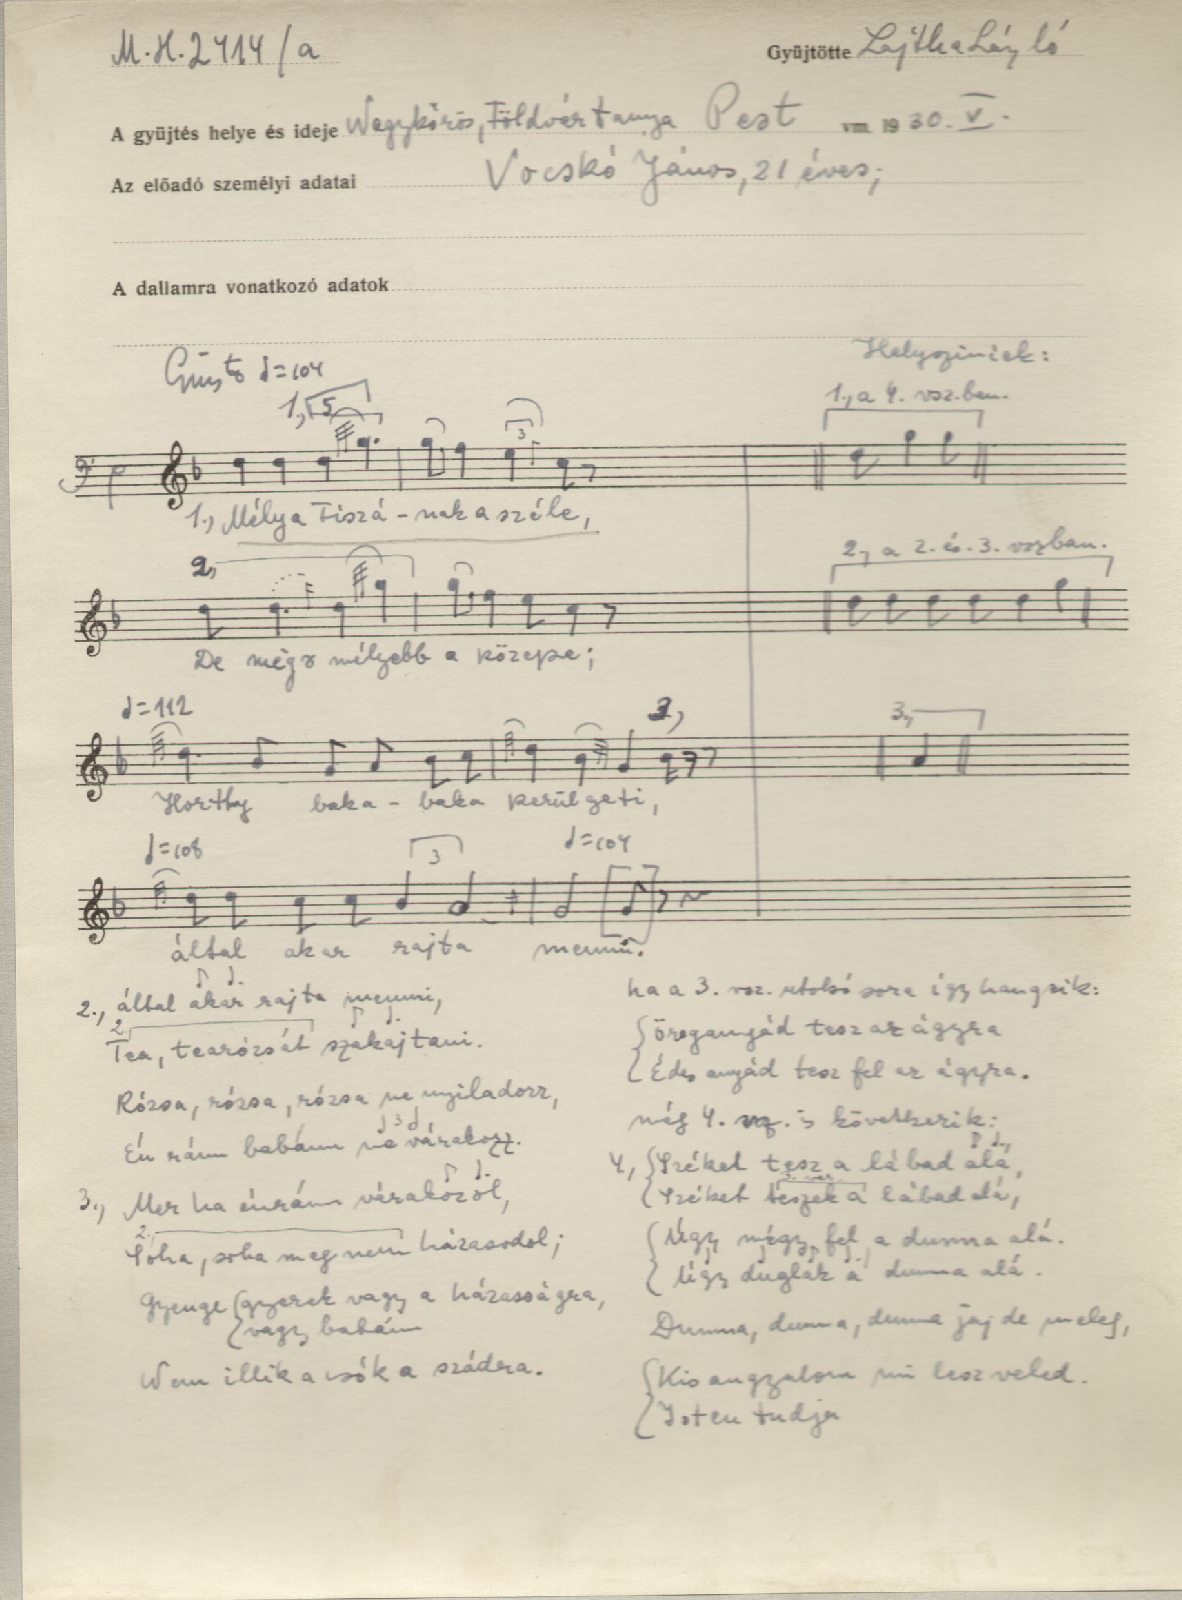 M.H.2414/a
Gyüjtötte Lajtha László
A gyüjtés helye és ideje Nagykőrös, Földvár tanya Pest vm. 1930. V.
Az előadó személyi adatai Vocskó János, 21 éves;
A dallamra vonatkozó adatok
Giusto ♩=104
Helyszíniek:
1., 5
3
1., a 4. vsz.ban.
1., Mélya Tiszá-nak a széle,
2,
2, a 2. és. 3. vszban.
De mégis mélyebb a közepe;
♩=112
3,
3,
Horthy baka-baka kerülgeti,
♩=108
3
♩=104
által akar rajta menni.
2., által akar rajta menni,
2,
Tea, tearózsát szakajtani.
Rózsa, rózsa, rózsa ne nyiladozz,
3
Én rám babám ne várakozz.
3., Mer ha énrám várakozol,
2,
Soha, soha meg nem házasodol;
Gyenge {gyerek vagy a házasságra,
{vagy babám
Nem illik a csók a szádra.
ha a 3. vsz. utolsó sora így hangzik:
{öreganyád tesz az ágyra
{Édes anyád tesz fel az ágyra.
még 4. vsz. is következik:
4., {Széket tesz a lábad alá,
{Széket teszek a lábad alá,
{Úgy mégy fel a dunna alá.
{Úgy duglak a dunna alá.
Dunna, dunna, dunna jaj de meleg,
{Kis angyalom mi lesz veled.
{Isten tudja